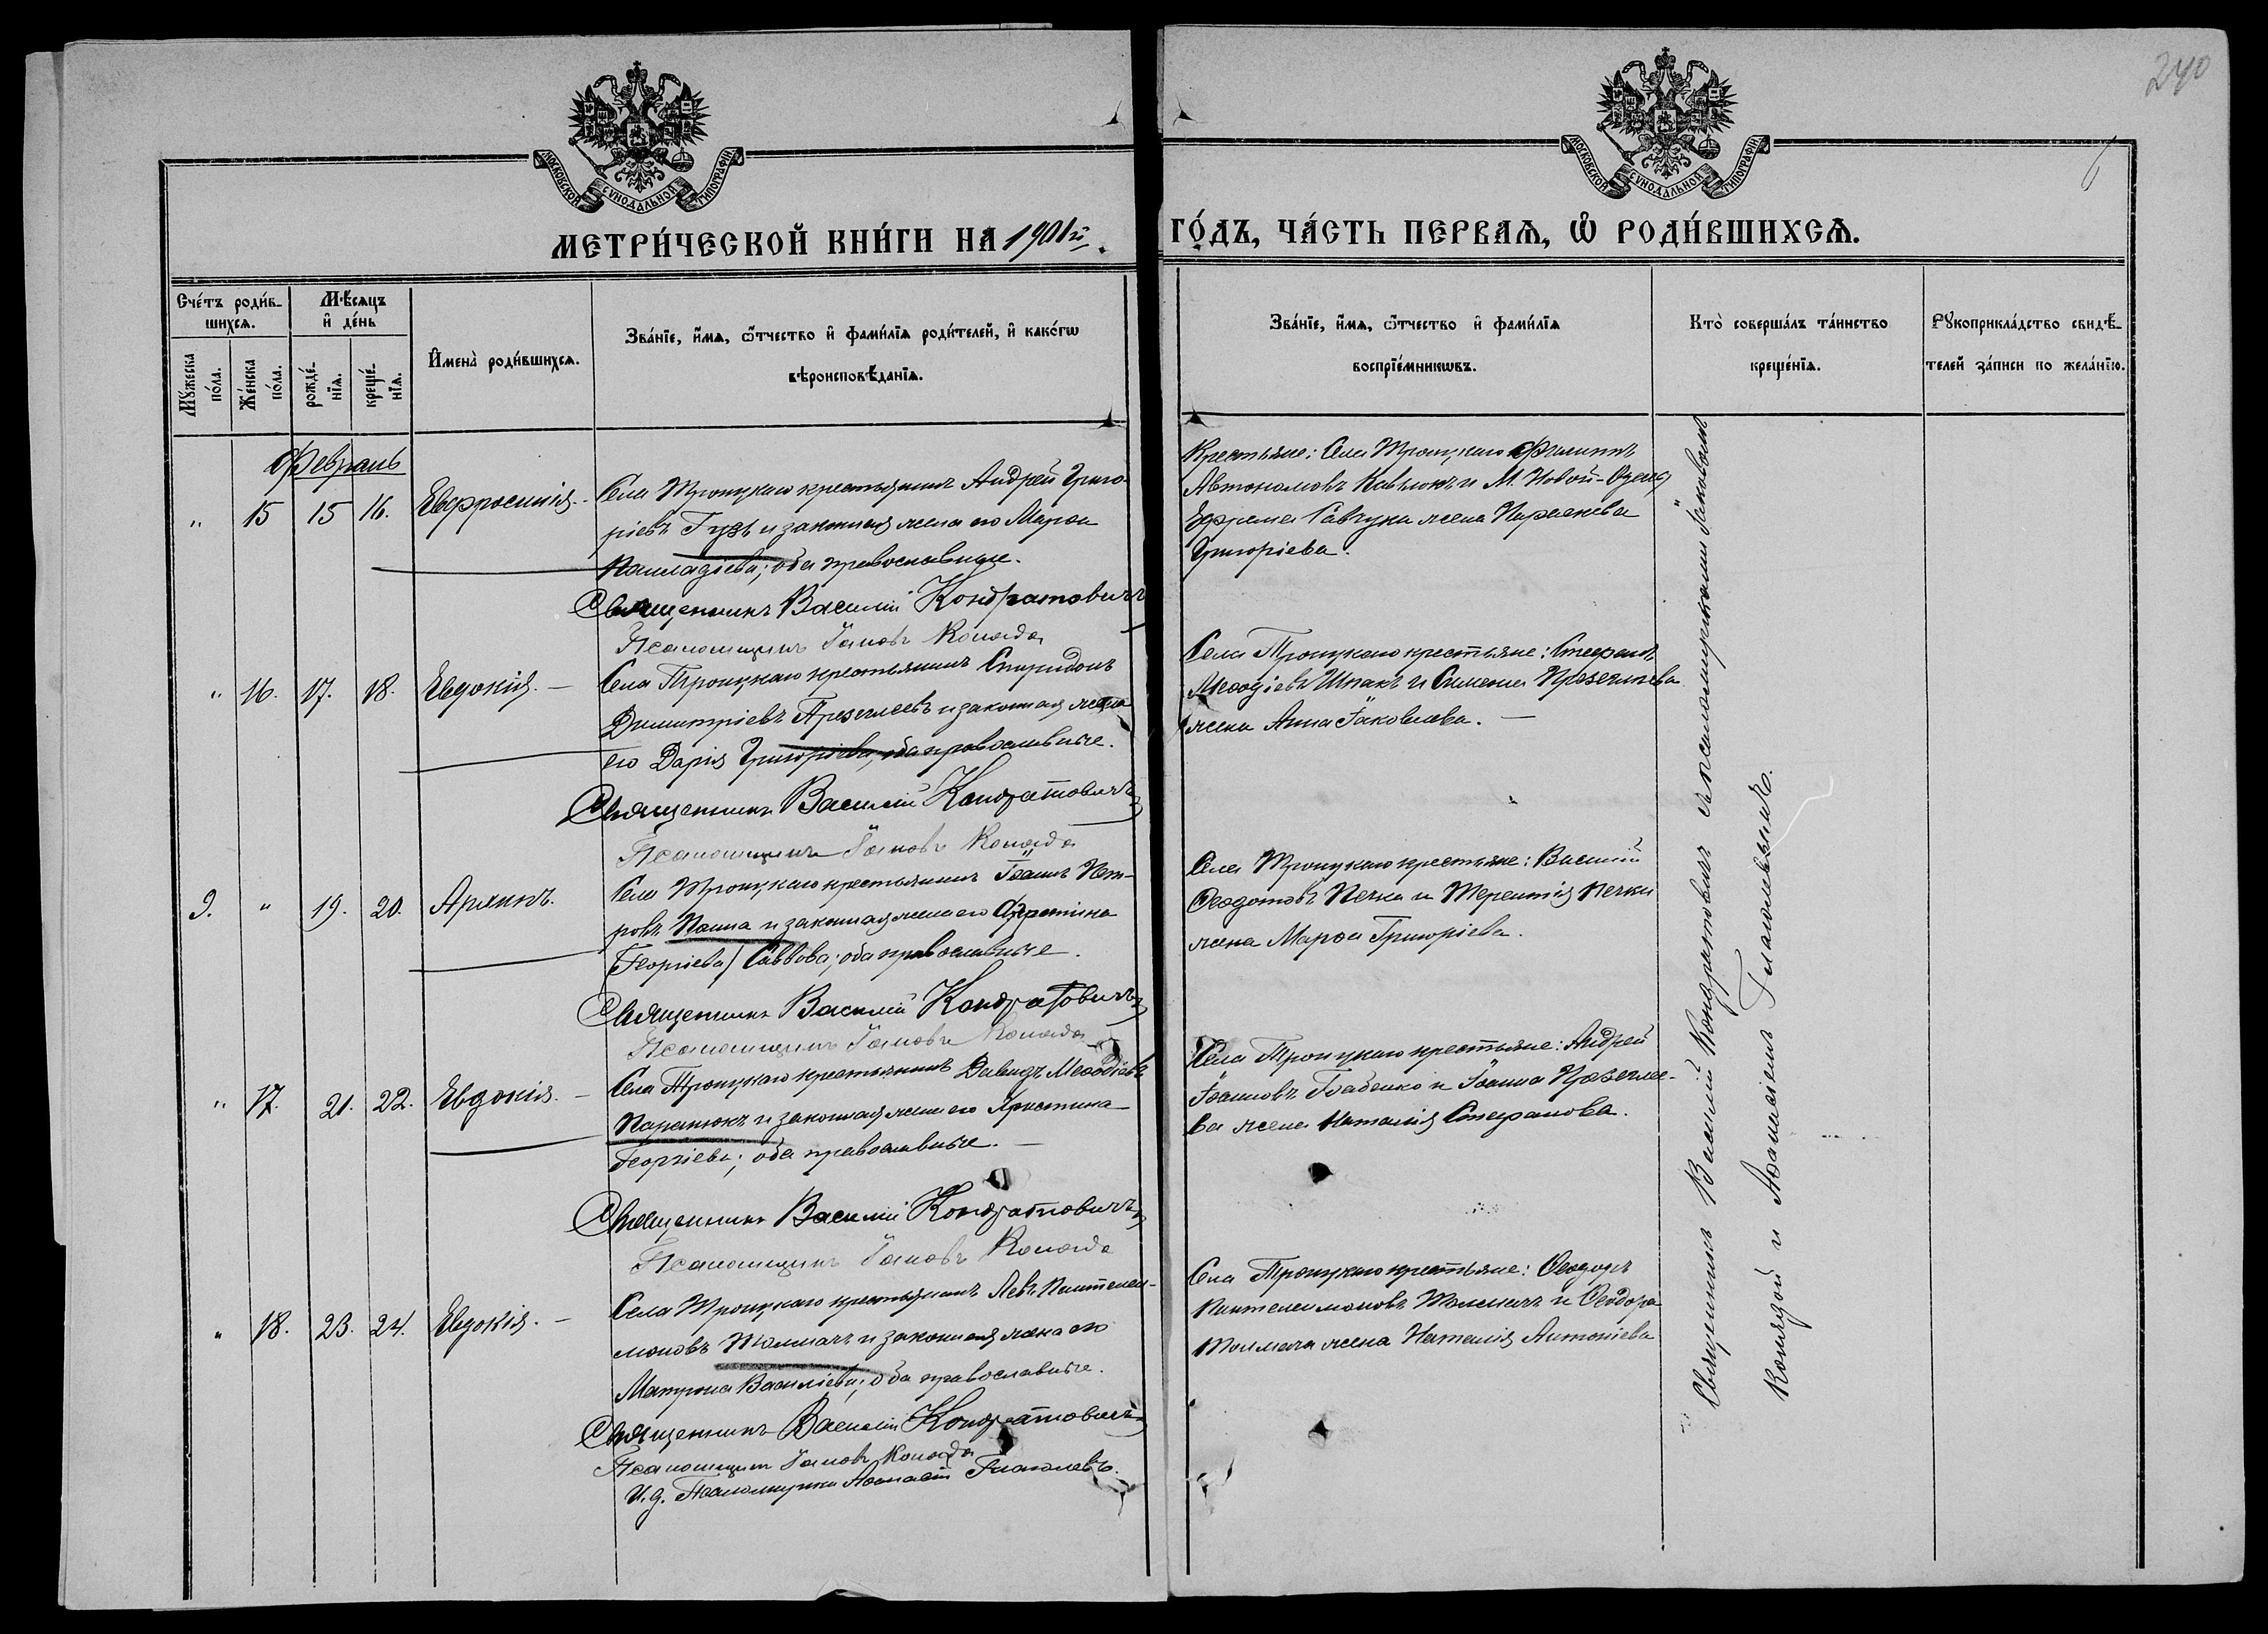 240
6
МОСКОВСКОЙ СѴНОДАЛЬНОЙ ТИПОГРАФІИ
МОСКОВСКОЙ СѴНОДАЛЬНОЙ ТИПОГРАФІИ
МЕТРИ́ЧЕСКОЙ КНИ́ГИ НА 1901й
ГО́ДЪ, ЧА́СТЬ ПЕРВАѦ, Ѡ҆ РОДИ́ВШИХСѦ.
Сче́тъ роди́в-
шихсѧ.
Мꙋ́жеска по́ла.
Же́нска по́ла.
Мѣ́сѧцъ
и҆ де́нь
рожде́-
нїѧ.
креще́-
нїѧ.
И҆мена̀ роди́вшихсѧ.
Зва́нїе, и҆́мѧ, ѻ҆́тчество и҆ фами́лїѧ роди́телей, и҆ како́гѡ
вѣроисповѣ́данїѧ.
Зва́нїе, и҆́мѧ, ѻ҆́тчество и҆ фами́лїѧ
воспрїе́мникѡвъ.
Кто̀ соверша́лъ та́инство
креще́нїѧ.
Рꙋкоприкла́дство свидѣ́-
телей за́писи по жела́нїю.
Февраль
" 15 15 16. Евфросинія.
Села Троицкаго крестьянинъ Андрей Григо-
ріевъ Гузь и законная жена его Марѳа
Палладіева; оба православные.
Священникъ Василій Кондратовичъ
Псаломщикъ Іаковъ Коляда
Крестьяне: Села Троицкаго Филиппъ
Автономовъ Кавлюкъ и М. Новой-Одессы
Ефрема Савчука жена Параскева
Григоріева.
" 16. 17. 18. Евдокія. —
Села Троицкаго крестьянинъ Спиридонъ
Димитріевъ Презглеевъ и законная жена
его Дарія Григоріева, оба православные.
Священникъ Василій Кондратовичъ
Псаломщикъ Іаковъ Коляда
Села Троицкаго крестьяне: Стефанъ
Меѳодіевъ Шпакъ и Симеона
жена Анна Іаковлева. —
9. " 19. 20. Архипъ.
Села Троицкаго крестьянинъ Іоаннъ Пет-
ровъ и законная жена его
Георгіева / Саввова; оба православные.
Священникъ Василій Кондратовичъ
Псаломщикъ Іаковъ Коляда
Села Троицкаго крестьяне: Василій
Ѳеодотовъ Печка и Терентія Печки
жена Марѳа Григоріева.
" 17. 21. 22. Евдокія. —
Села Троицкаго крестьянинъ Давидъ Меѳодіевъ
Паранюкъ и законная жена его Христина
Георгіева; оба православные. —
Священникъ Василій Кондратовичъ
Псаломщикъ Іаковъ Коляда
Села Троицкаго крестьяне: Андрей
Іоанновъ Бабенко и Іоанна Презглее-
ва жена Наталія Стефанова.
" 18. 23. 24. Евдокія. —
Села Троицкаго крестьянинъ Левъ Пантелеи-
моновъ Толмачъ и законная жена его
Матрона Василіева; оба православные.
Священникъ Василій Кондратовичъ
Псаломщикъ Іаковъ Коляда
И. д. Псаломщика Аѳанасій Глаголевъ.
Села Троицкаго крестьяне: Ѳеодоръ
Пантелеимоновъ Толмачъ и Ѳеодора
Толмача жена Наталія Антоніева
Священникъ Василій Кондратовичъ съ псаломщиками Іаковомъ
Колядой и Аѳанасіемъ Глаголевымъ.